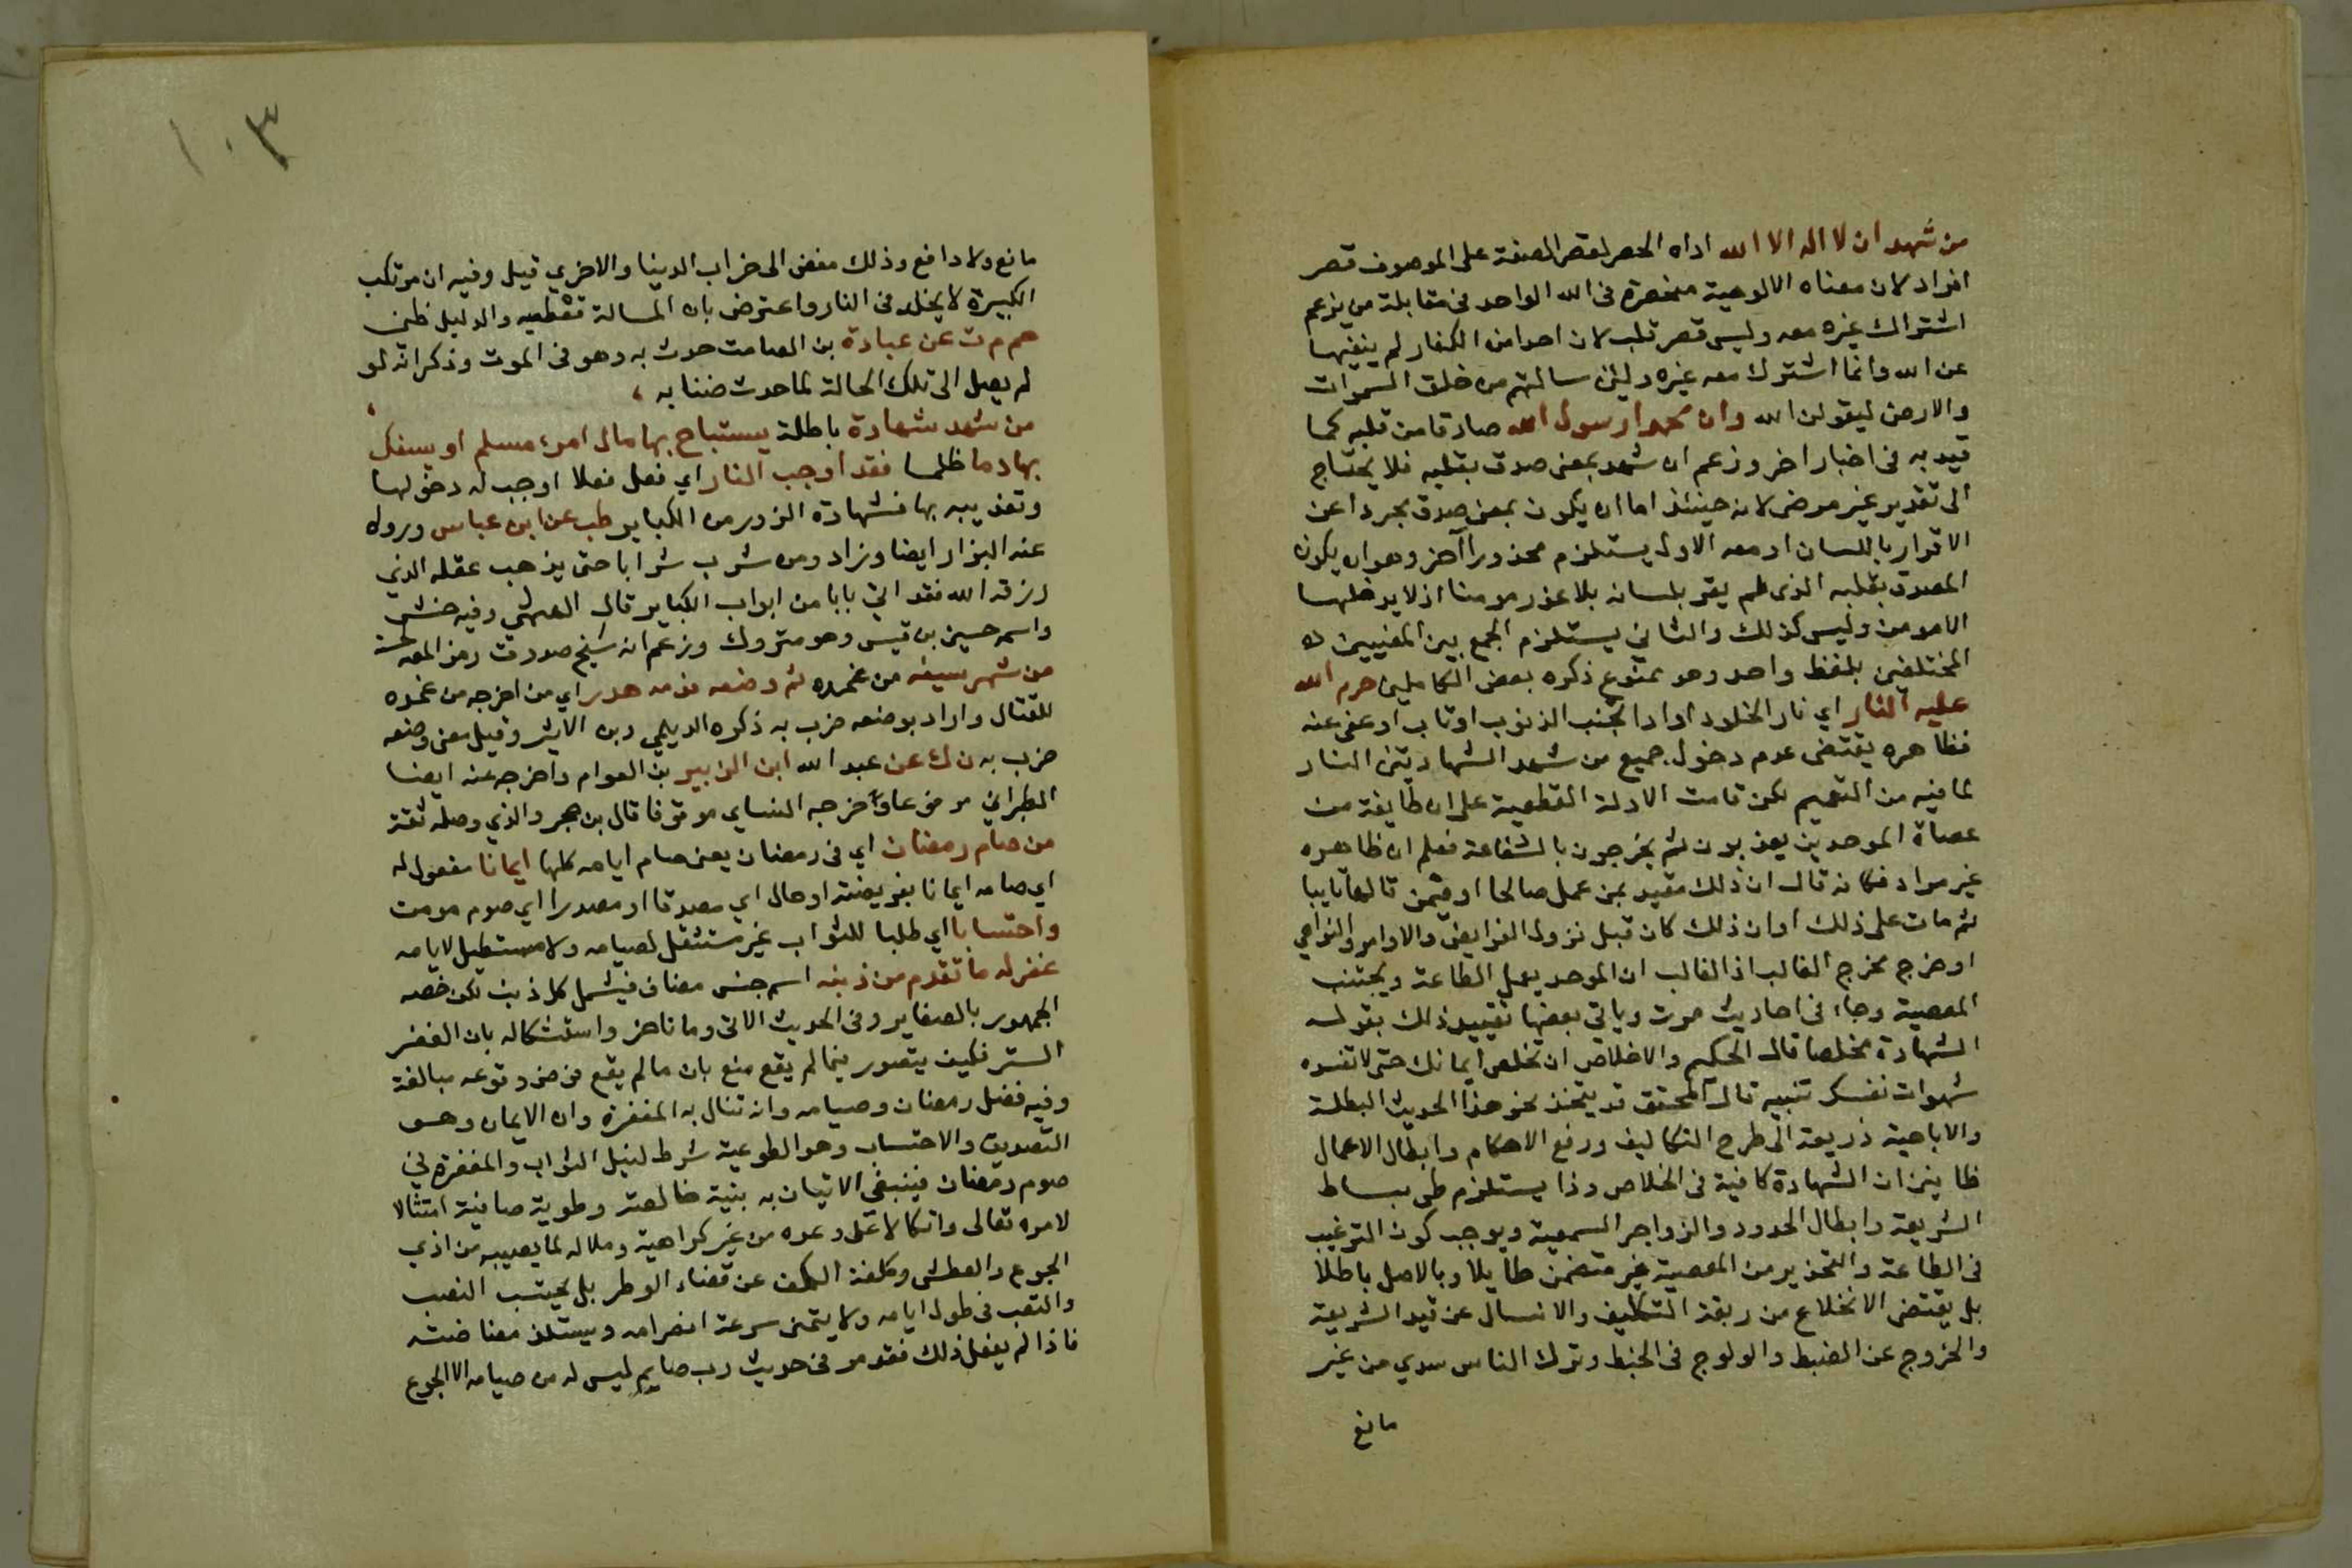 من شهد ان لا اله الا الله اداه الحصر لقصر الصفة على الموصوف قصر
افراد لان معناه الالوهية منحصرة فى الله الواحد فى مقابلة من يزعم
اشتراك غيره معه وليس قصر قلب لان احدا من الكفار لم ينفيها
عن الله وانما اشترك معه غيره ولئن سالتهم من خلق السموات
والارض ليقولن الله وان محمدا رسول الله صادقا من قلبه كما
قيد به فى اخبار اخر وزعم ان شهد بمعنى صدق بقلبه فلا يحتاج
الى تقدير غير مرضى لانه حينئذ اما ان يكون بمعنى صدق مجردا عن
الاقرار باللسان او معه الاول يستلزم محذورا آخر وهو ان يكون
المصدق بقلبه الذى لم يقر بلسانه بلا عذر مومنا اذ لا يدخلها
الا مومن وليس كذلك والثاني يستلزم الجمع بين المعنيين
المختلفين بلفظ واحد وهو ممنوع ذكره بعض الكاملين حرم الله
عليه النار اي نار الخلود اذا تجنب الذنوب او تاب او عفى عنه
فظاهره يقتضى عدم دخول جميع من شهد الشهادتين النار
لما فيه من التعميم لكن قامت الادلة القطعية على ان طايفة من
عصاة الموحدين يعذبون ثم يخرجون بالشفاعة فعلم ان ظاهره
غير مراد فكانه قال ان ذلك مقيد بمن عمل صالحا او فيمن قالها تايبا
ثم مات على ذلك او ان ذلك كان قبل نزول الفرايض والاوامر والنواهي
او خرج مخرج الغالب اذ الغالب ان الموحد يعمل الطاعة ويجتنب
المعصية وجاء فى احاديث مرت وياتي بعضها تقييد ذلك بقوله
الشهادة مخلصا قال الحكيم والاخلاص ان تخلص ايمانك حتى لا تفسده
شهوات نفسك تنبيه قال المحقق قد يتخذ نحو هذا الحديث البطلة
والاباحية ذريعة الى طرح التكاليف ورفع الاحكام وابطال الاعمال
ظانين ان الشهادة كافية فى الخلاص وذا يستلزم طى بساط
الشريعة وابطال الحدود والزواجر السمعية ويوجب كون الترغيب
فى الطاعة والتحذير من المعصية غير متضمن طايلا وبالاصل باطلا
بل يقتضى الانخلاع من ربقة التكليف والانسلال عن قيد الشريعة
والخروج عن الضبط والولوج فى الخبط وترك الناس سدي من غير
مانع
١٠٣
مانع ولا دافع وذلك مفض الى خراب الدنيا والاخري قيل وفيه ان مرتكب
الكبيرة لا يخلد فى النار واعترض بان المسالة قطعيه والدليل ظنى
حم م ت عن عبادة بن الصامت حدث به وهو فى الموت وذكر انه لو
لم يصل الى تلك الحالة لما حدث ضنا به
من شهد شهادة باطلة يستباح بها مال امرء مسلم او يسفك
بها دما ظلما فقد اوجب النار اي فعل فعلا اوجب له دخولها
وتعذيبه بها فشهادة الزور من الكباير طب عن ابن عباس ورواه
عنه البزار ايضا وزاد ومن شرب شرابا حتى يذهب عقله الذي
رزقه الله فقد اتى بابا من ابواب الكباير قال الهيثمى وفيه حنش
واسمه حسين بن قيس وهو متروك وزعم انه شيخ صدوق رمز المص لحسنه
من شهر سيفه من غمده ثم وضعه فدمه هدر اي من اخرجه من غمده
للقتال واراد بوضعه ضرب به ذكره الديلمي وبن الاثير وقيل معنى وضعه
ضرب به ن ك عن عبد الله ابن الزبير بن العوام واخرجه عنه ايضا
الطبراني مرفوعا واخرجه النساي موقوفا قال بن حجر والذي وصله ثقة
من صام رمضان اي فى رمضان يعنى صام ايامه كلها ايمانا مفعول له
اي صامه ايمانا بفريضته او حال اي مصدقا او مصدرا اي صوم مومن
واحتسابا اي طلبا للثواب غير مستثقل لصيامه ولا مستطيل لايامه
غفر له ما تقدم من ذنبه اسم جنس مضاف فيشمل كل ذنب لكن خصه
الجمهور بالصغاير وفى الحديث الاتى وما تاخر واستشكاله بان الغفر
الستر فكيف يتصور فيما لم يقع منع بان ما لم يقع فرض وقوعه مبالغة
وفيه فضل رمضان وصيامه وانه تنال به المغفرة وان الايمان وهو
التصديق والاحتساب وهو الطوعية شرط لنيل الثواب والمغفرة في
صوم رمضان فينبغى الاتيان به بنية خالصة وطوية صافية امتثالا
لامره تعالى واتكالا على وعده من غير كراهية وملاله لما يصيبه من اذي
الجوع والعطش وكلفة الكف عن قضاء الوطر بل يحتسب النصب
والتعب فى طول ايامه ولا يتمنى سرعة انصرامه ويستلذ مضاضته
فاذا لم يفعل ذلك فقد مر فى حديث رب صايم ليس له من صيامه الا الجوع